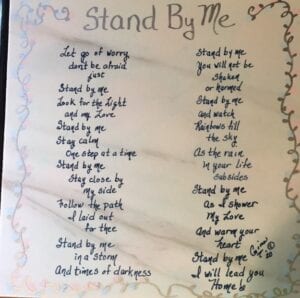 Stand By Me
Let go of worry
don't be afraid
just
Stand by me
Look for the Light
and my Love
Stand by me
Stay calm
One step at a time
Stand by me
Stay close by
my side
Follow the path
I laid out
for thee
Stand by me
in a storm
And times of darkness
Stand by me
You will not be
Shaken
or harmed
Stand by me
and watch
Rainbows fill
the sky
As the rain
in your life
subsides
Stand by me
As I shower
My Love
And warm your
heart
Stand by me
I will lead you
Home